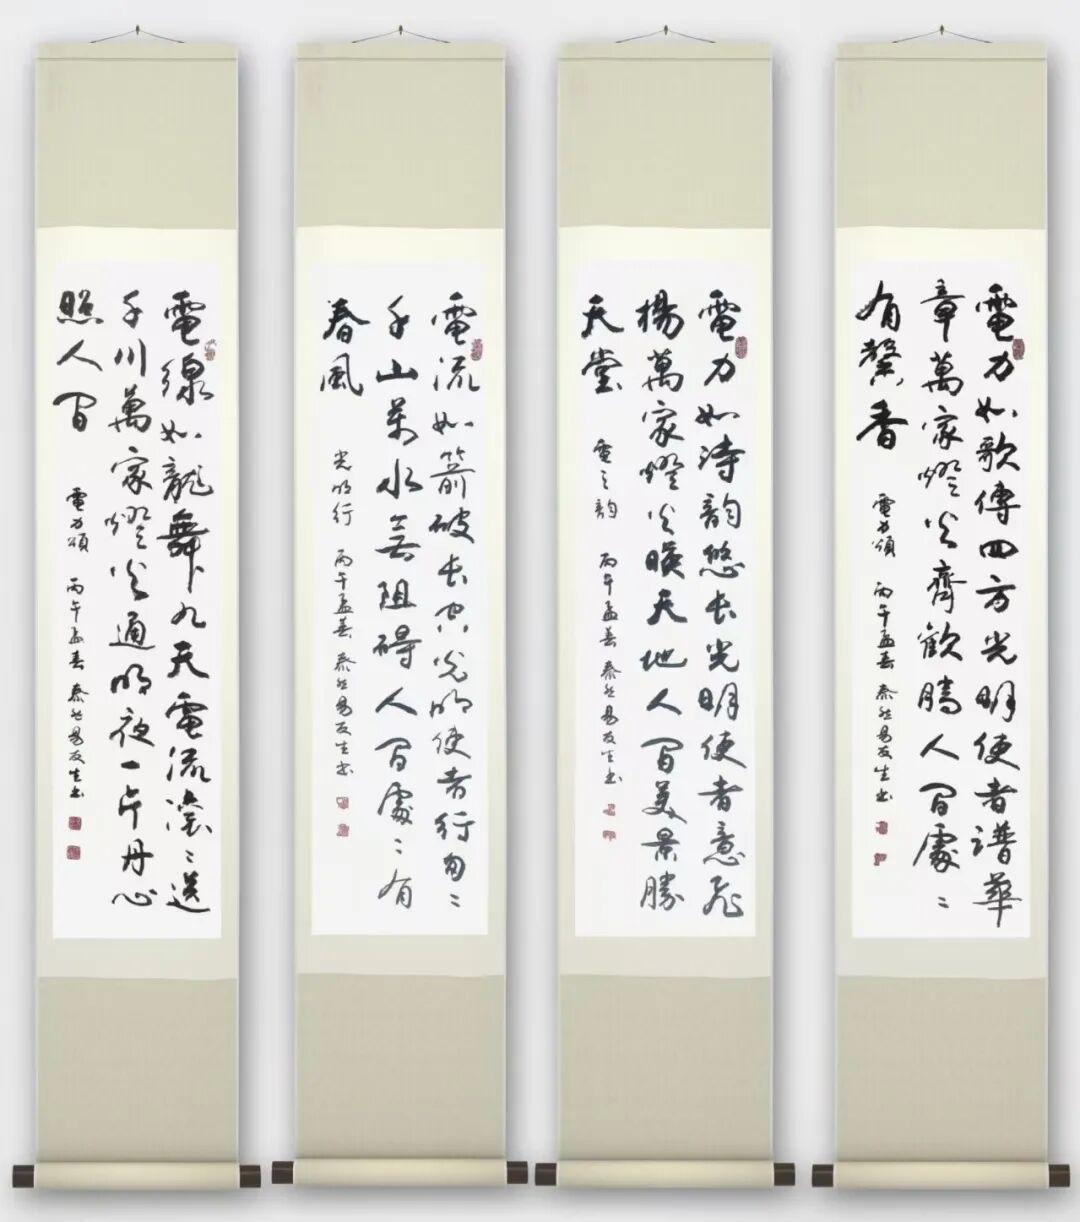 電力如歌傳四方光明使者譜華
章萬家燈火齊歡騰人間處〻
有馨香
電力頌 丙午孟春 泰然易友生书
電力如詩韵悠长光明使者意飛
揚萬家燈火暎天地人間美景勝
天堂
電之韵 丙午孟春 泰然易友生书
電流如箭破长空光明使者行匆〻
千山万水無阻碍人間處〻有
春風
光明行 丙午孟春 泰然易友生书
電線如龍舞九天電流滚〻送
千川萬家燈火通明夜一片丹心
照人間
電力頌 丙午孟春 泰然易友生书